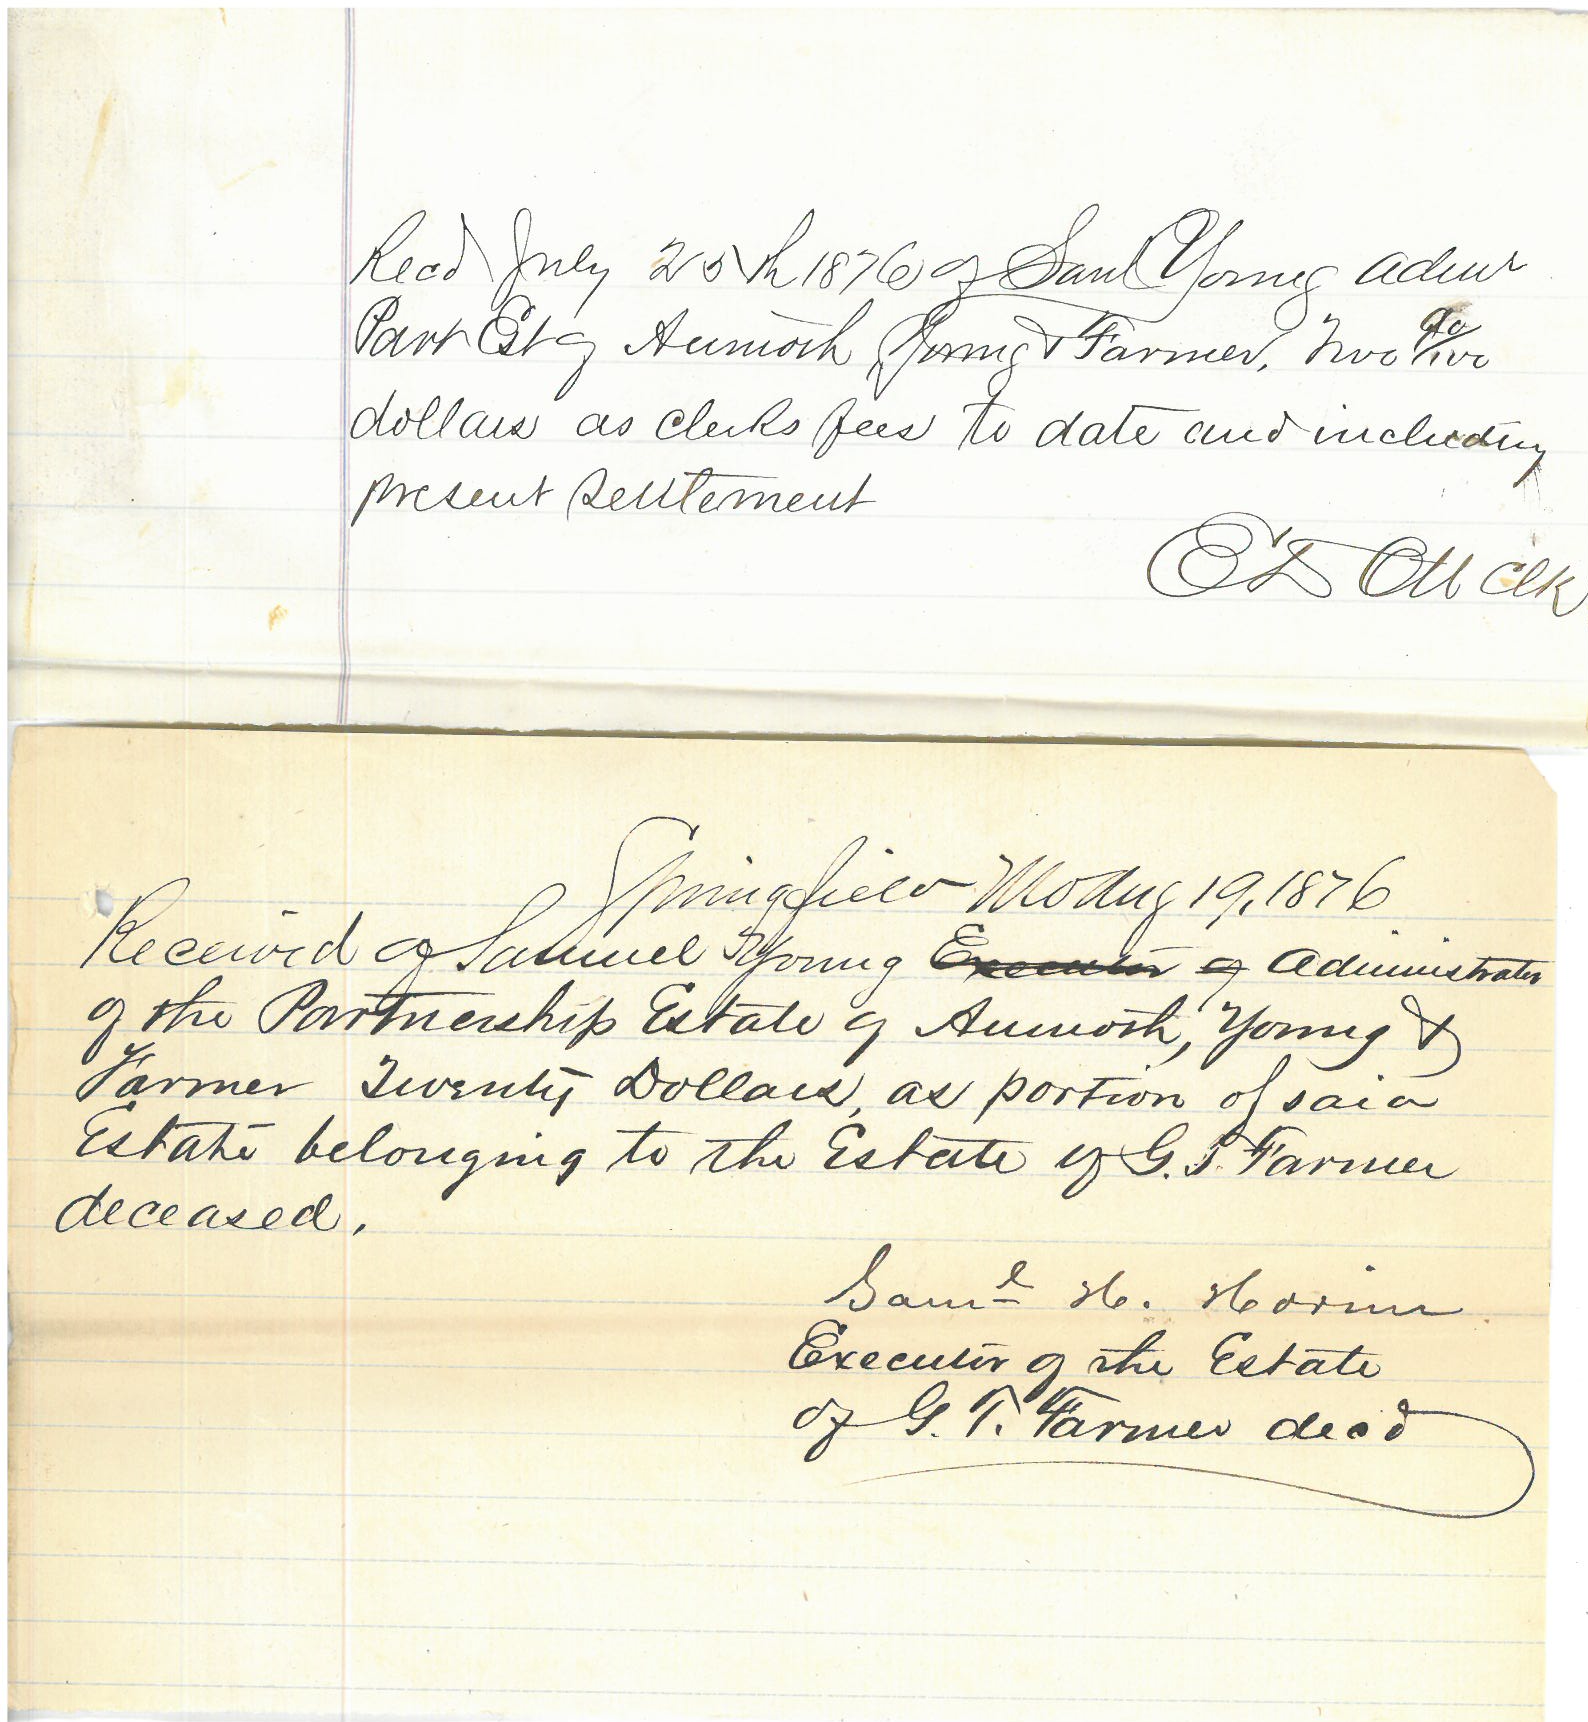 Recd July 25th 1876 of Saml Young Admr
Part Est of Aumoth Young & Farmer, Two 90/100
dollars as clerks fees to date and including
present settlement
E D Ott Clk
Springfield Mo Aug 19, 1876
Received of Samuel Young Executor of Administrator
of the Partnership Estate of Aumoth, Young &
Farmer Twenty Dollars, as portion of said
Estate belonging to the Estate of G. T. Farmer
deceased.
Saml H. Horine
Executor of the Estate
of G. T. Farmer decd